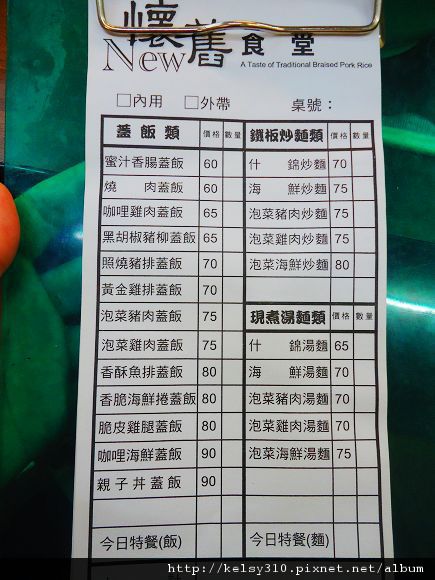 懷舊食堂
New
A Taste of Traditional Braised Pork Rice
□內用 □外帶 桌號：
蓋飯類 價格 數量
蜜汁香腸蓋飯 60
燒肉蓋飯 60
咖哩雞肉蓋飯 65
黑胡椒豬柳蓋飯 65
照燒豬排蓋飯 70
黃金雞排蓋飯 70
泡菜豬肉蓋飯 75
泡菜雞肉蓋飯 75
香酥魚排蓋飯 80
香脆海鮮捲蓋飯 80
脆皮雞腿蓋飯 80
咖哩海鮮蓋飯 90
親子丼蓋飯 90
今日特餐(飯)
鐵板炒麵類 價格 數量
什錦炒麵 70
海鮮炒麵 75
泡菜豬肉炒麵 75
泡菜雞肉炒麵 75
泡菜海鮮炒麵 80
現煮湯麵類 價格 數量
什錦湯麵 65
海鮮湯麵 70
泡菜豬肉湯麵 70
泡菜雞肉湯麵 70
泡菜海鮮湯麵 75
今日特餐(麵)
http://kelsy310.pixnet.net/album